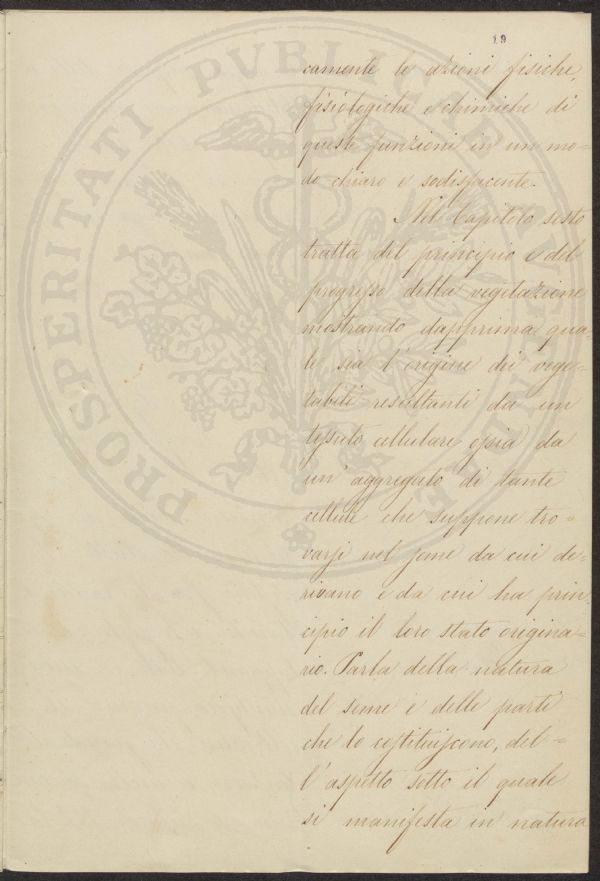 29
camente le azioni fisiche,
fisiologiche e chimiche di
queste funzioni in un mo-
do chiaro e sodisfacente.
Nel Capitolo sesto
tratta del principio e del
progresso della vegetazione
mostrando dapprima qua-
le sia l'origine dei vege-
tabili resultanti da un
tessuto cellulare ossia da
un' aggregato di tante
cellule che suppone tro-
varsi nel seme da cui de-
rivano e da cui ha prin-
cipio il loro stato origina-
rio. Parla della natura
del seme e delle parti
che lo costituiscono, del-
l'aspetto sotto il quale
si manifesta in natura
PROSPERITATI PVBLICAE AVGENDAE